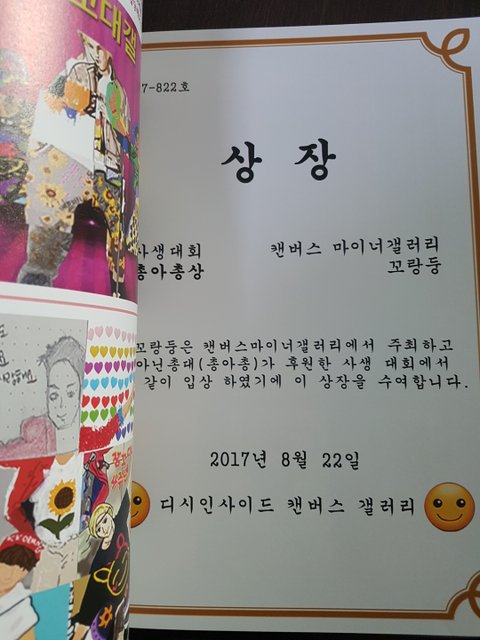 고대갤
7-822호
상 장
사생대회 캔버스 마이너갤러리
총아총상 꼬랑둥
꼬랑둥은 캔버스마이너갤러리에서 주최하고
아닌총대(총아총)가 후원한 사생 대회에서
같이 입상 하였기에 이 상장을 수여합니다.
2017년 8월 22일
디시인사이드 캔버스 갤러리